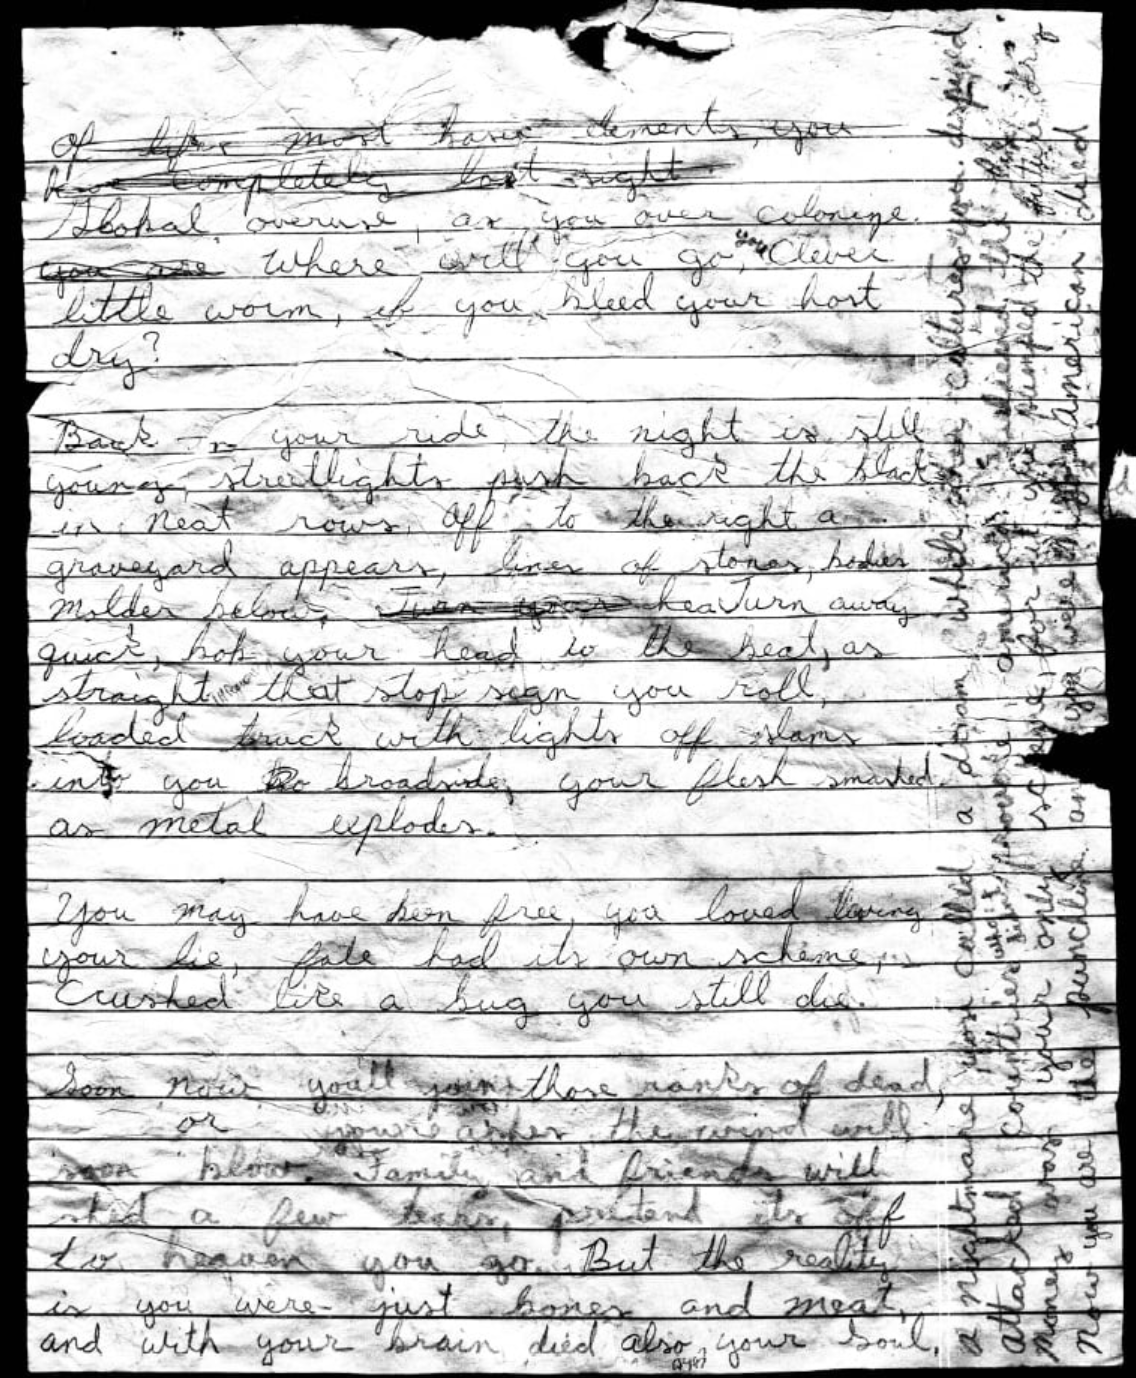 of life's most basic elements, you
have completely lost sight.
Global overuse, as you over colonize.
you are Where will you go, you Clever
little worm, if you bleed your host
dry?
Back in your ride, the night is still
young, streetlights push back the black
in neat rows. Off to the right a
graveyard appears, lines of stones, bodies
molder below. Turn your hea Turn away
quick, bob your head to the beat, as
straight through that stop sign you roll,
loaded truck with lights off slams
into you broadside, your flesh smashed
as metal explodes.
You may have been free, you loved living
your lie, fate had its own scheme,
Crushed like a bug you still die.
Soon now you'll join those ranks of dead,
or your ashes the wind will
soon blow. Family and friends will
shed a few tears, pretend its off
to heaven you go. But the reality
is you were just bones and meat,
and with your brain died also your soul.
a nightmare you called a dream while other cultures you despised
attacked countries what didn't provoke
money was your only scheme, for oil you pumped the future dry
Now you are the punchline. and you were American died